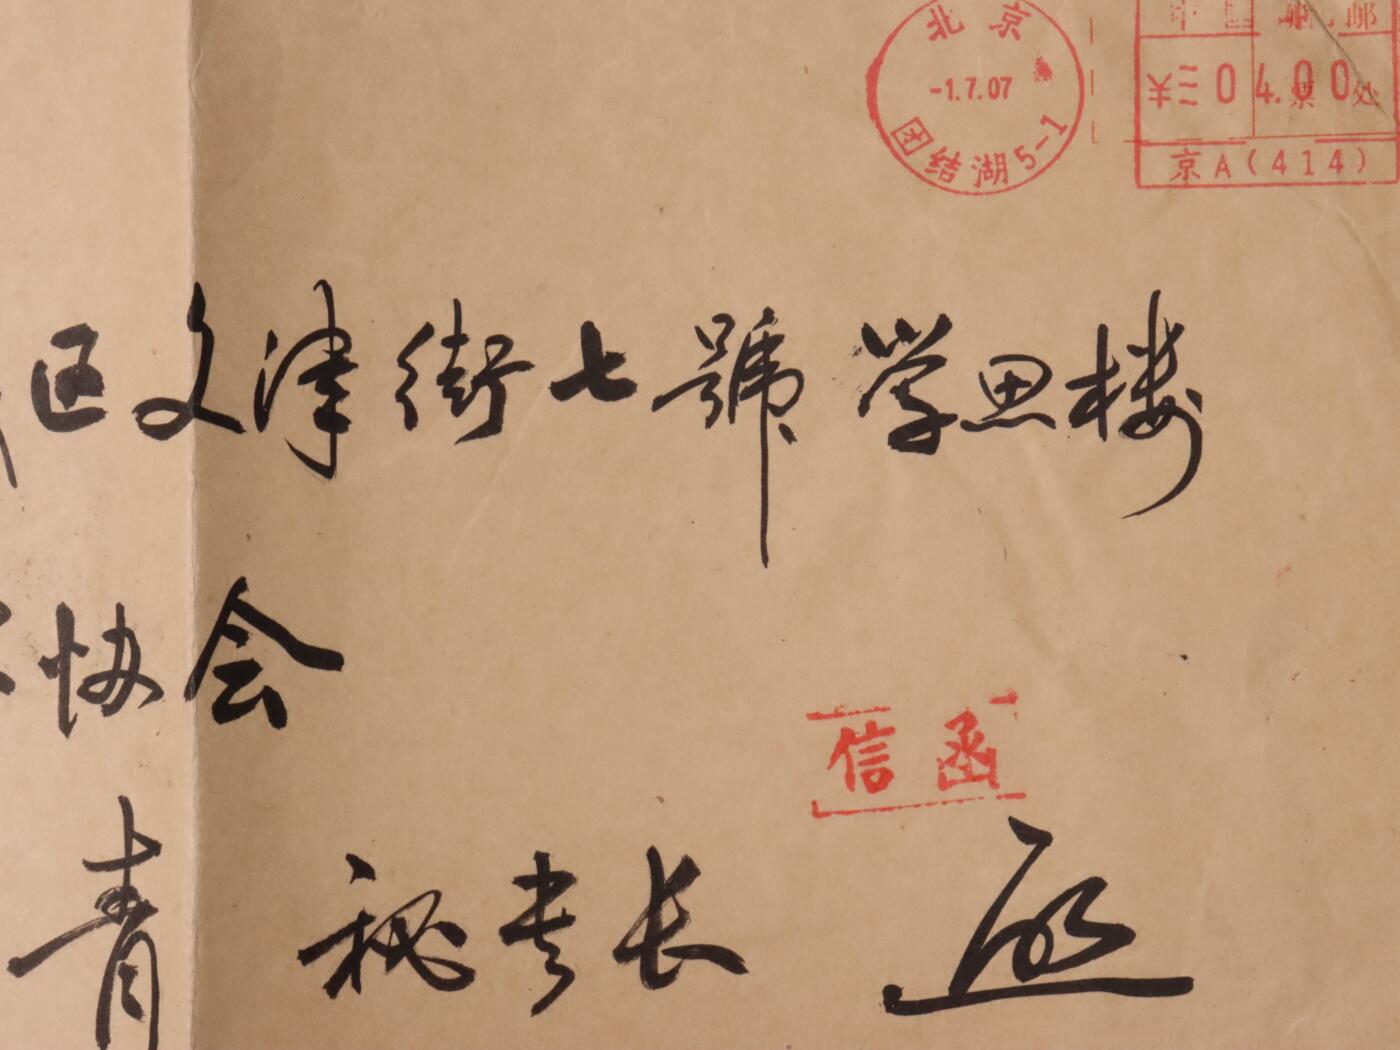 北京
-1.7.07
团结湖5-1
¥三04.00
票处
京A(414)
区文津街七號 学思楼
协会
信函
青 秘书长 启